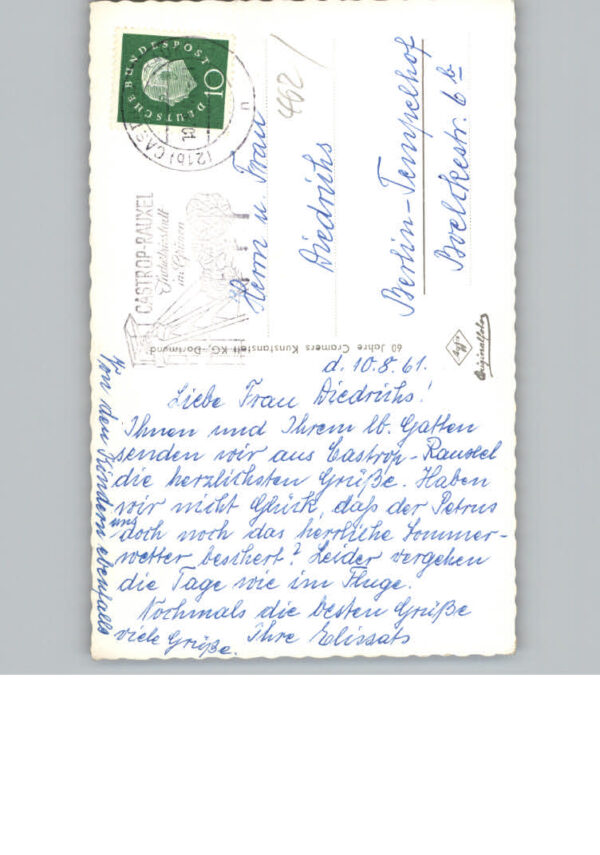 DEUTSCHE BUNDESPOST
10
(21b) CAST
u
CASTROP-RAUXEL
Industriestadt
im Grünen
462
Herrn u. Frau
Diedrichs
Berlin-Tempelhof
Boelckestr. 6 b
60 Jahre Cramers Kunstanstalt KG., Dortmund
Agfa
Originalfoto
d. 10.8.61.
Liebe Frau Diedrichs!
Ihnen und Ihrem lb. Gatten
senden wir aus Castrop-Rauxel
die herzlichsten Grüße. Haben
wir nicht Glück, daß der Petrus
uns doch noch das herrliche Sommer-
wetter beschert? Leider vergehen
die Tage wie im Fluge.
Nochmals die besten Grüße
Ihre Elissats
Von den Kindern ebenfalls
viele Grüße.